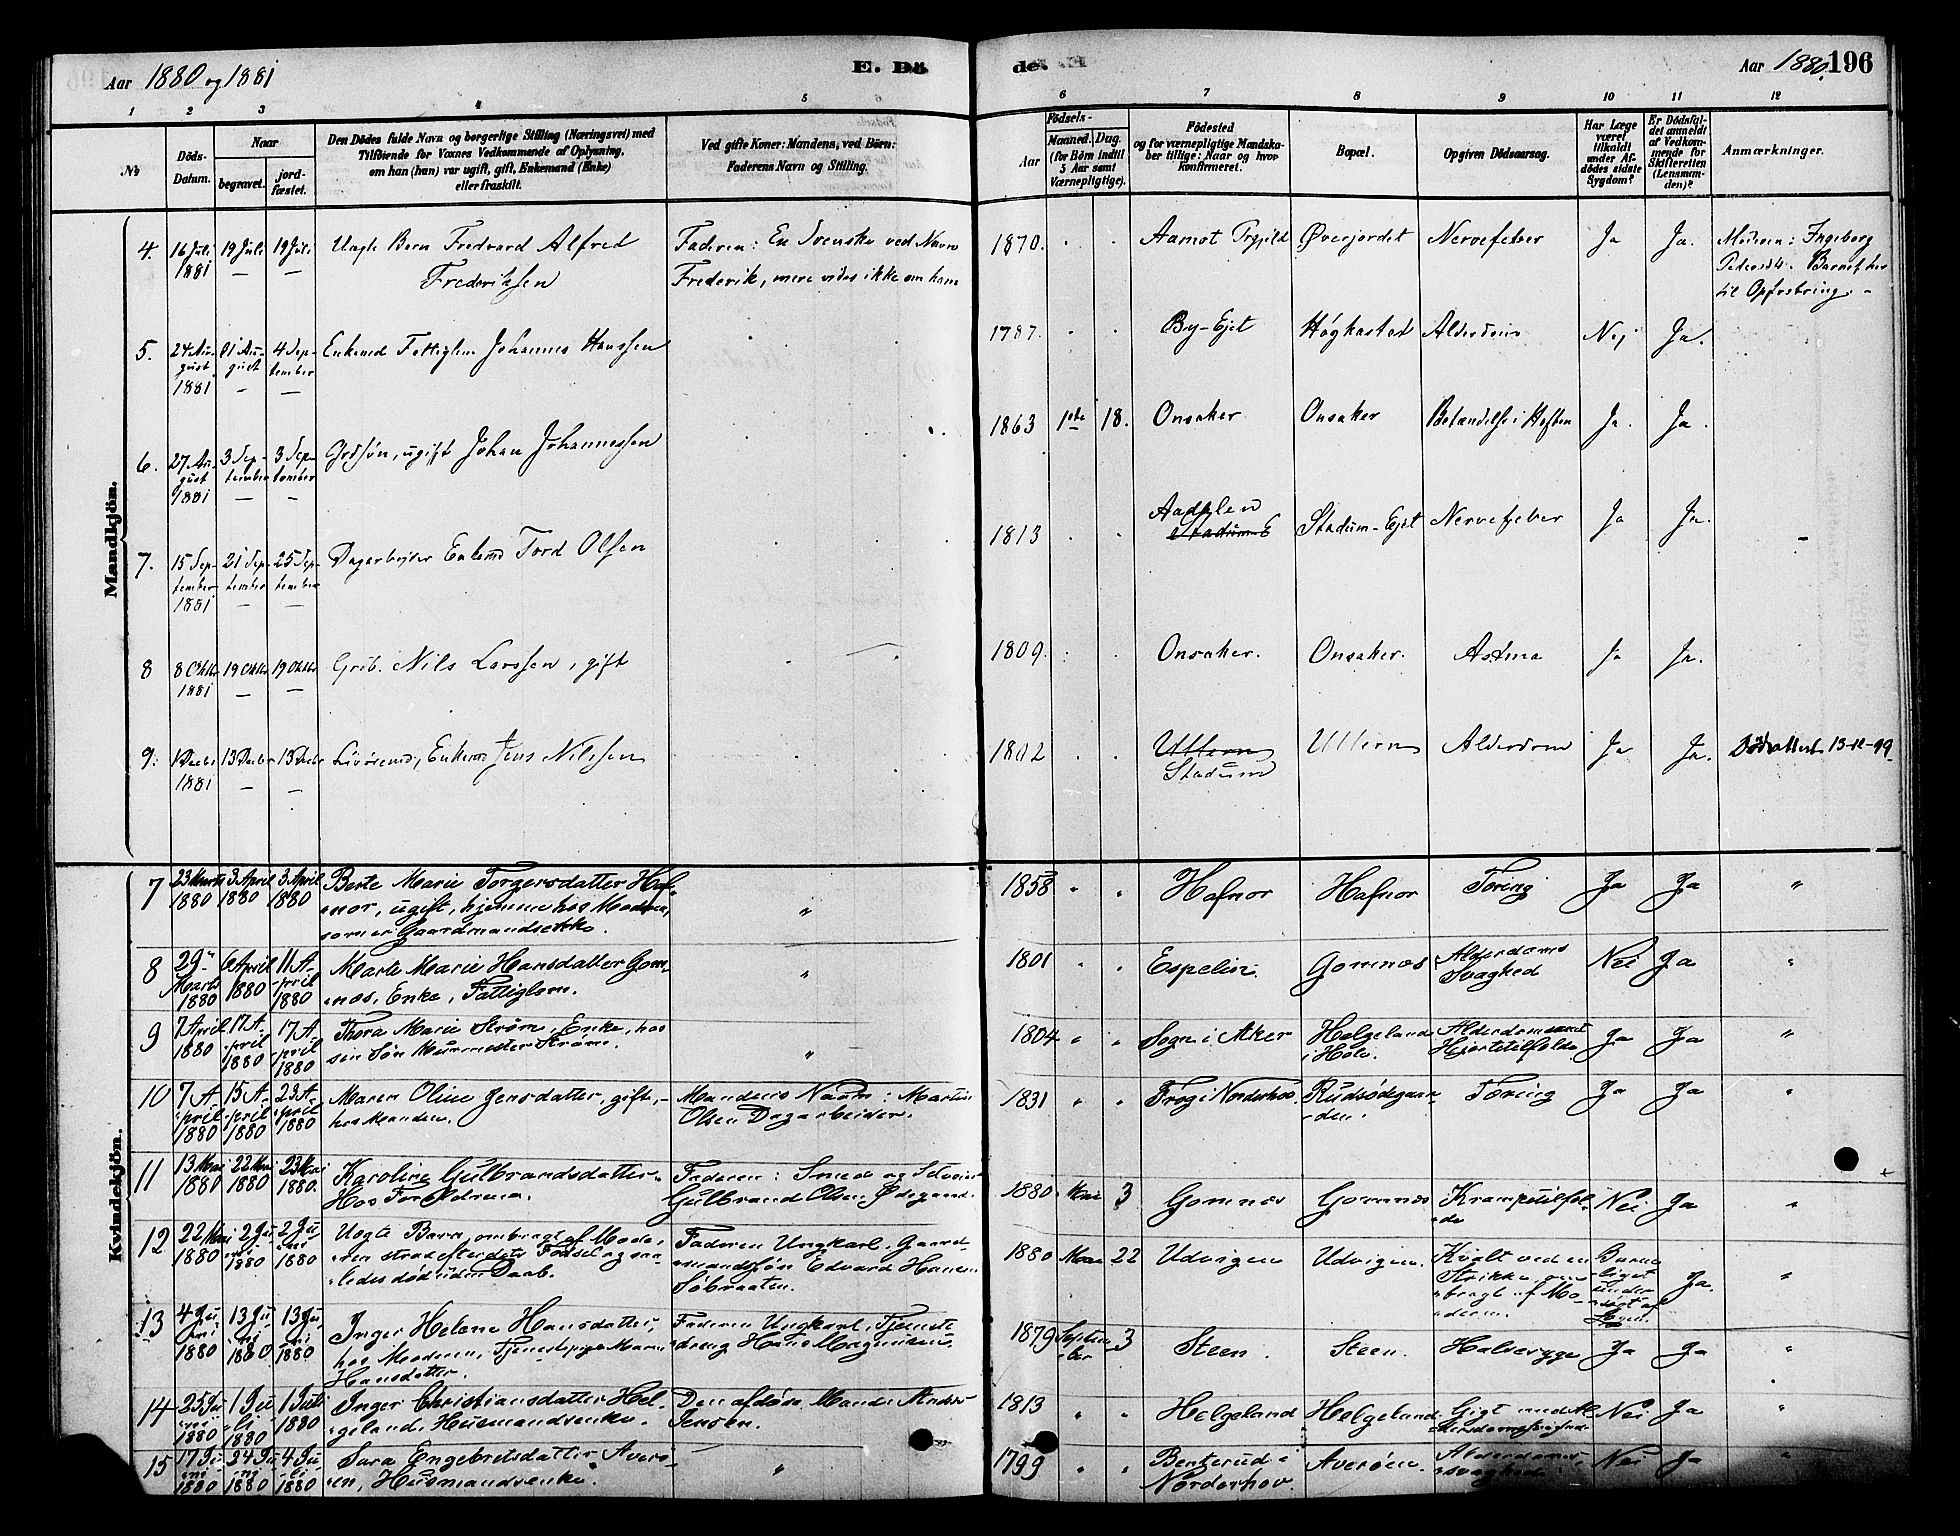 Aar 1880 og 1881
E. Dö
de.
Aar 1880.
196
1 2 3 4 5 6 7 8 9 10 11 12
№
Döds-
Datum.
Naar
begravet.
jord-
fæstet.
Den Dödes fulde Navn og borgerlige Stilling (Næringsvei) med
Tilföiende for Voxnes Vedkommende af Oplysning,
om han (hun) var ugift, gift, Enkemand (Enke)
eller fraskilt.
Ved gifte Koner: Mandens, ved Börn:
Faderens Navn og Stilling.
Födsels-
Aar
Maaned.
Dag.
(for Börn indtil
5 Aar samt
Værnepligtige).
Födested
og for værnepligtige Mandska-
ber tillige: Naar og hvor
konfirmeret.
Bopæl.
Opgiven Dödsaarsag.
Har Læge
været
tilkaldt
under Af-
dödes sidste
Sygdom?
Er Dödsfal-
det anmeldt
af Vedkom-
mende for
Skifteretten
(Lensman-
den)?
Anmærkninger.
Mandkjön.
4. 16 Juli 1881 19 Juli — 19 Juli — Uægte Barn Fredvard Alfred
Frederiksen
Faderen: En Svenske ved Navn
Frederik, mere vides ikke om ham
1870. Aamot Øverjordet Nervefeber Ja Ja. Moderen: Ingeborg
Pedersdt. Barnet her
til Opfostring.
5. 24 August 1881 31 August — 4 September — Enkemd Fattiglem Johannes Hanssen
1787. By-Ejet Høgkastet Alderdom Nej Ja.
6. 27 August 1881 3 September — 3 September — Grdsøn, ugift Johan Johannessen
1863 18. Onsaker Onsaker Betændelse i Hoften Ja. Ja.
7. 15 September 1881 21 September — 25 September — Dagarbejder Enkemd Tord Olsen
1813 Aadalen Stadum E Stadum-Ejet Nervefeber Ja Ja.
8 8 Oktbr 1881 19 Oktbr — 19 Oktbr — Grdb. Nils Larssen, gift
1809. Onsaker. Onsaker. Astma Ja Ja.
9. Decbr 1881 13 Decbr — 13 Decbr — Livøremd, Enkemd Jens Nilssen
1802 Ultern Stadum Ultern Alderdom Ja Ja. Dødsattest 13-12-99
Kvindekjön.
7 23 Marts 1880 3 April 1880 3 April 1880 Berte Marie Torgersdatter Haf-
nor, ugift, hjemme hos Moderen,
som er Gaardmandsenke.
" 1858 " " Hafnor Hafnor Tæring Ja Ja "
8 29 Marts 1880 6 April 1880 11 April 1880 Marte Marie Hansdatter Gom-
næs, Enke, Fattiglem.
" 1801 " " Espelin. Gomnæs Alderdoms Svaghed Nei Ja "
9 7 April 1880 17 April 1880 17 April 1880 Thora Marie Strøm, Enke, hos
sin Søn Murmester Strøm.
" 1804 " " Sogn i Aker Helgeland i Hole. Alderdom samt Hjertetilfælde Ja Ja "
10 7 April 1880 15 April 1880 23 April 1880 Maren Oline Jensdatter, gift,
hos Manden.
Mandens Navn: Martin
Olsen Dagarbeider.
1831 " " Frøg i Norderhov Rudsødegaarden. Tæring Ja Ja "
11 13 Mai 1880 22 Mai 1880 23 Mai 1880. Karoline Gulbrandsdatter
Hos Forældrene.
Faderen: Smed og Selveier
Gulbrand Olsen Ødegaard.
1880 Mai 3 Gomnæs Gomnæs Krampetilfælde Nei Ja "
12 22 Mai 1880 2 Juni 1880 2 Juni 1880 Uægte Barn, ombragt af Mode-
ren strax efter dets Fødsel og saa-
ledes død uden Daab.
Faderen Ungkarl, Gaard-
mandssøn Edvard Hansen
Søbraaten.
1880 Mai 22 Udvigen Udvigen Kvalt ved en Strikke, ombragt af Moderen. Barneliget undersøgt af Lægen. Ja. "
13 4 Juni 1880 13 Juni 1880 13 Juni 1880 Inger Helene Hansdatter,
hos Moderen, Tjenestepige Maren
Hansdatter.
Faderen Ungkarl, Tjeneste-
dreng Hans Magnussen.
1879 September 3 Steen. Steen. Halsesyge Ja Ja "
14 25 Juni 1880 1 Juli 1880 1 Juli 1880 Inger Christiansdatter Hel-
geland, Husmandsenke.
Den afdøde Mand: Anders
Jensen.
1813 " " Helgeland Helgeland Gigt med Nei Ja "
15 17 Juni 1880 24 Juni 1880 4 Juli 1880 Sara Engebretsdatter Averø-
en, Husmandsenke.
" 1799 " " Benterud i Norderhov. Averøen. Alderdoms-svaghed Nei Ja "